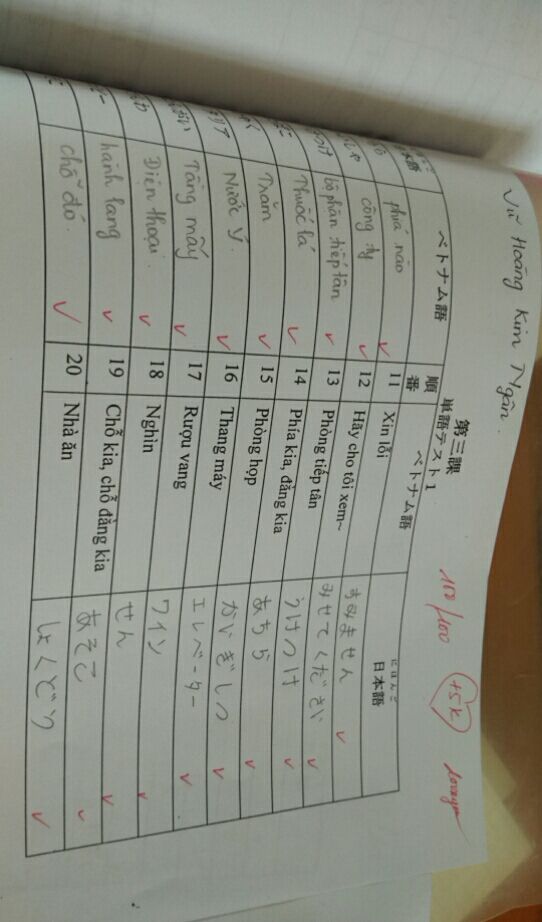 Vũ Hoàng Kim Ngân.
第三課
単語テスト1
100/100 +5k
ベトナム語 順番 ベトナム語 日本語 にほんご
phía nào 11 Xin lỗi すみません
công ty 12 Hãy cho tôi xem~ みせてください
bộ phận tiếp tân 13 Phòng tiếp tân うけつけ
Thuốc lá 14 Phía kia, đằng kia あちら
Trăm 15 Phòng họp かいぎしつ
Nước Ý. 16 Thang máy エレベーター
Tầng mấy 17 Rượu vang ワイン
Điện thoại. 18 Nghìn せん
hành lang 19 Chỗ kia, chỗ đằng kia あそこ
chỗ đó. 20 Nhà ăn しょくどう